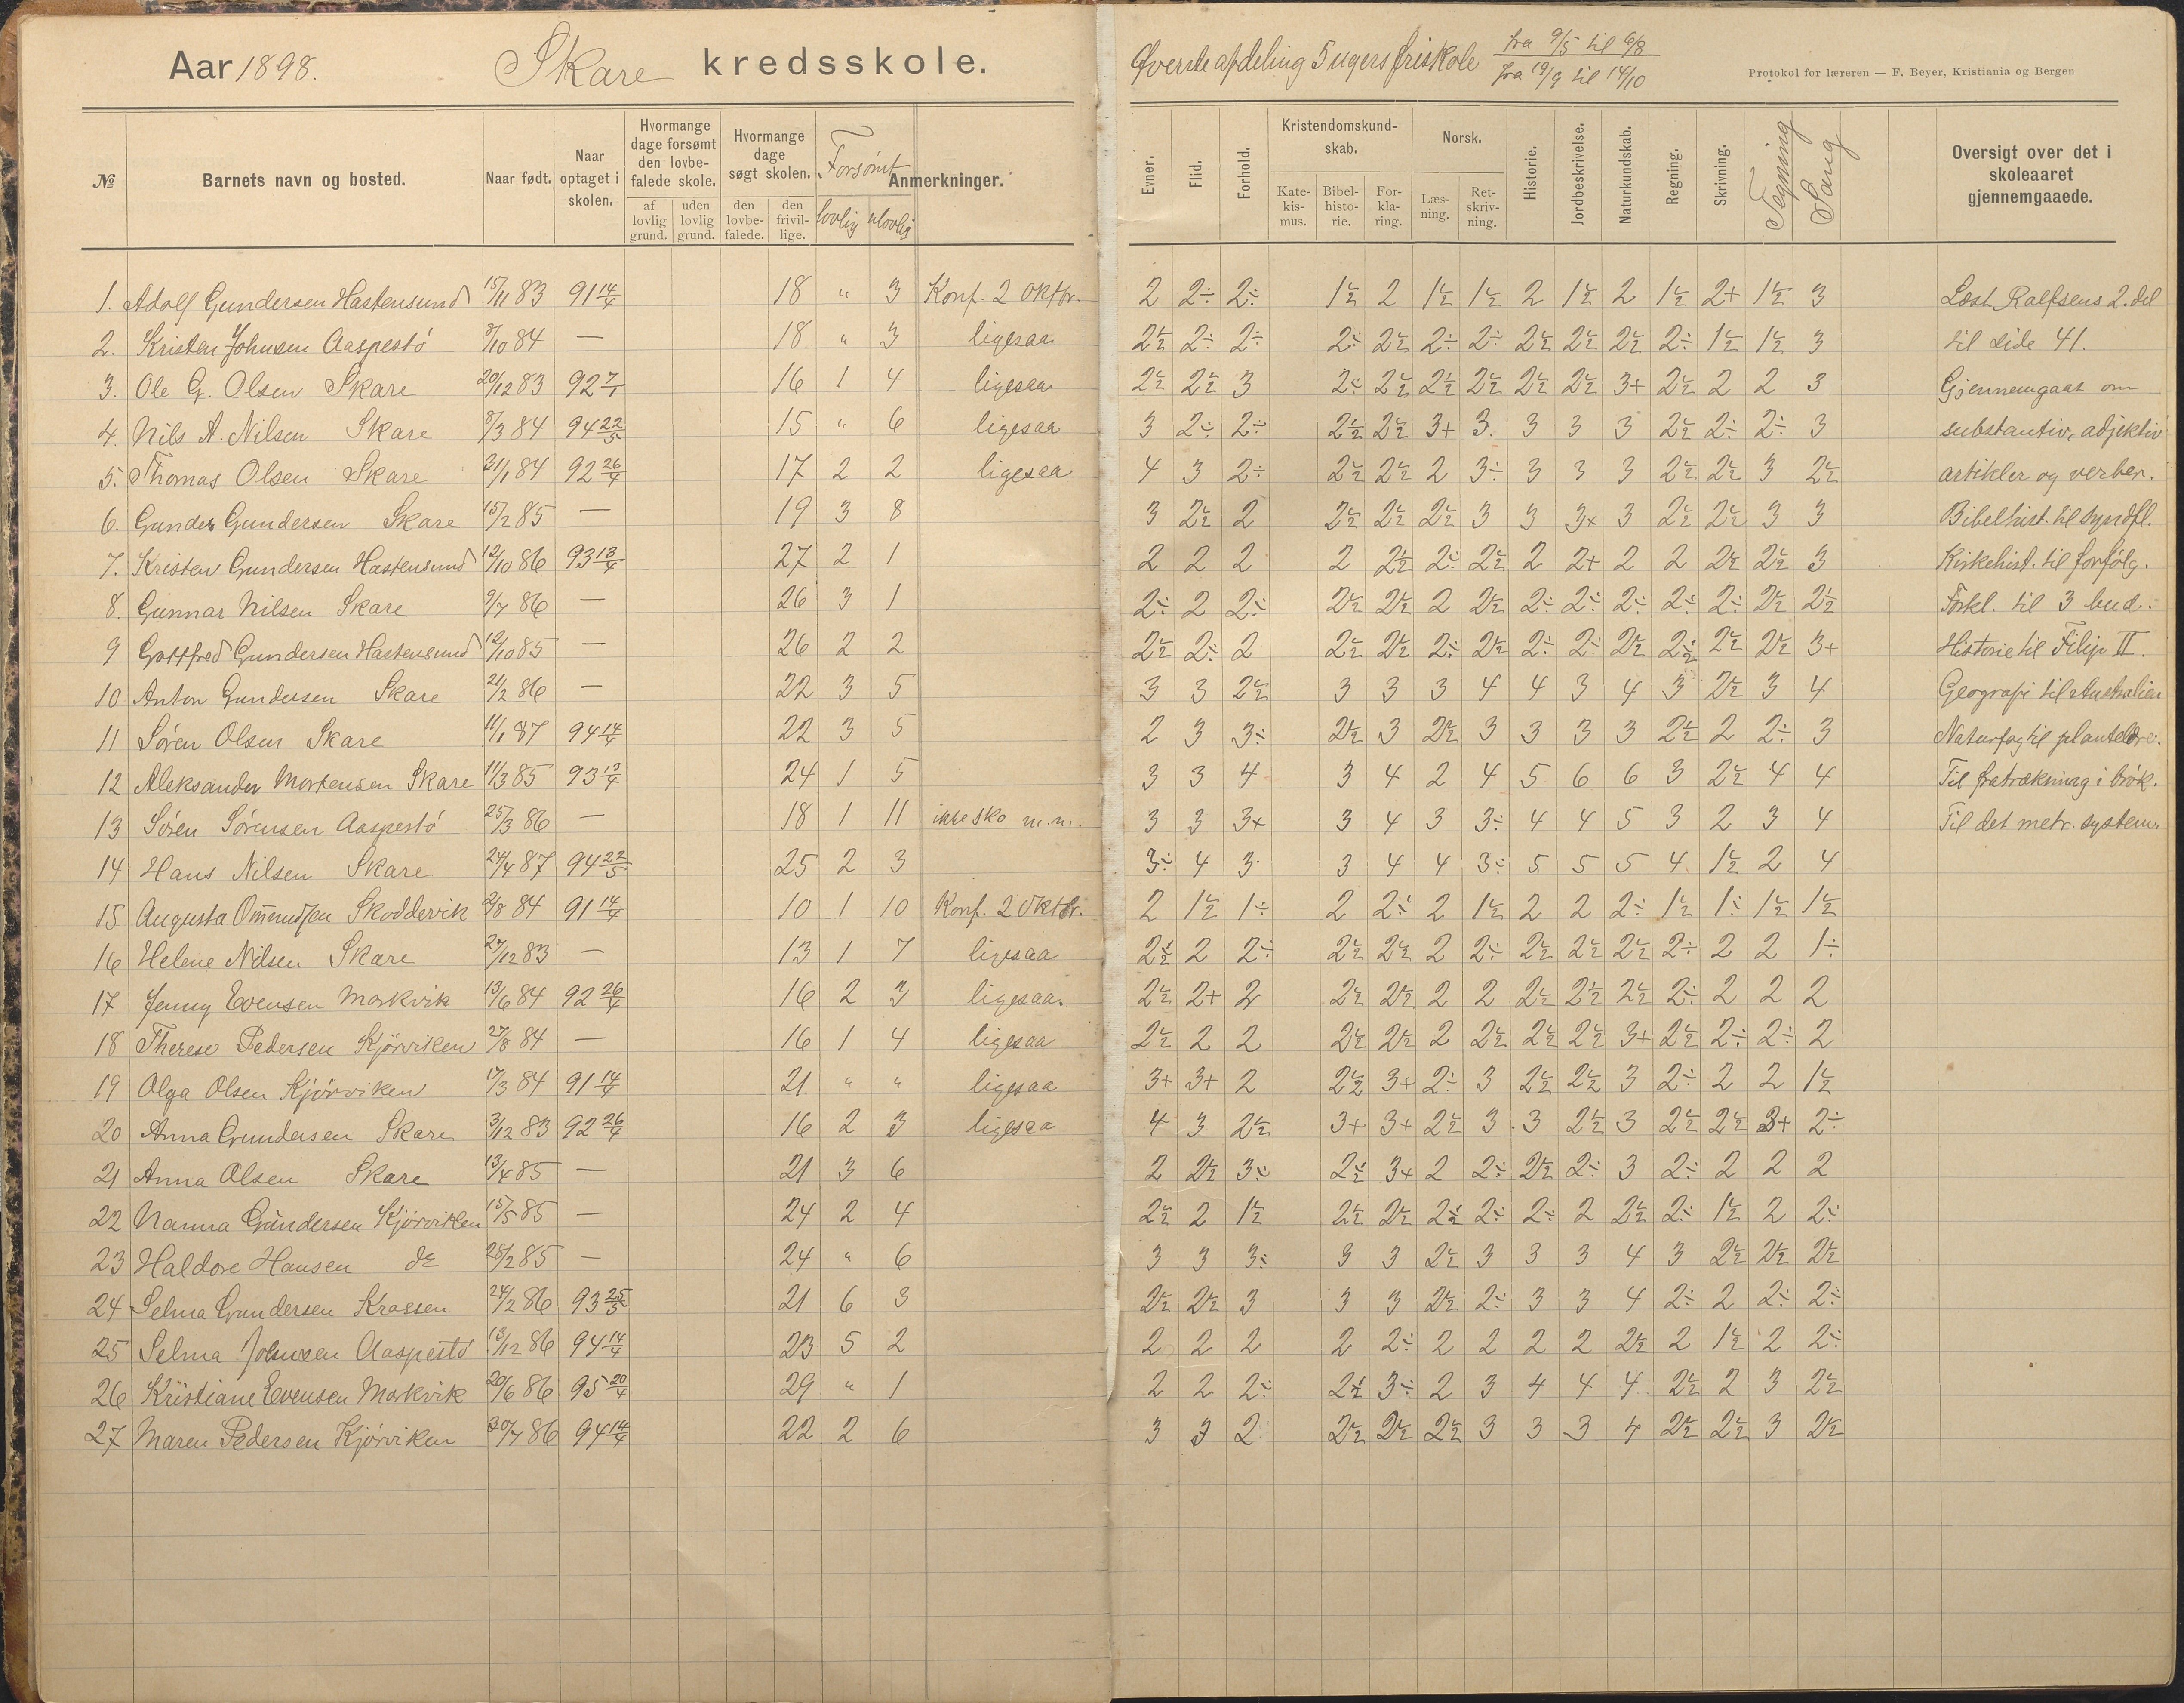 Aar 1898. Skare kredsskole.
Øverste afdeling 5 ugers friskole fra 9/5 til 6/8
fra 19/9 til 14/10
Protokol for læreren — F. Beyer, Kristiania og Bergen
№ Barnets navn og bosted. Naar født. Naar optaget i skolen. Hvormange dage forsømt den lovbefalede skole. af lovlig grund. uden lovlig grund. Hvormange dage søgt skolen. den lovbefalede. den frivillige. Forsømt lovlig ulovlig Anmerkninger.
Evner. Flid. Forhold. Kristendomskundskab. Katekismus. Bibelhistorie. Forklaring. Norsk. Læsning. Retskrivning. Historie. Jordbeskrivelse. Naturkundskab. Regning. Skrivning. Tegning Sang Oversigt over det i skoleaaret gjennemgaaede.
1. Adolf Gundersen Hastensund 15/11 83 91 14/4 18 " 3 Konf. 2 Oktbr. 2 2÷ 2÷ 1½ 2 1½ 1½ 2 1½ 2 1½ 2+ 1½ 3 Læst Rolfsens 2. del
2. Kristen Johnsen Aaspestö 8/10 84 — 18 " 3 ligesaa 2½ 2÷ 2÷ 2÷ 2½ 2÷ 2÷ 2½ 2½ 2½ 2÷ 1½ 1½ 3 til side 41.
3. Ole G. Olsen Skare 20/12 83 92 7/1 16 1 4 ligesaa 2½ 2½ 3 2÷ 2½ 2½ 2½ 2½ 2½ 3+ 2½ 2 2 3 Gjennemgaat om
4. Nils A. Nilsen Skare 8/3 84 94 22/5 15 " 6 ligesaa 3 2÷ 2÷ 2½ 2½ 3+ 3 3 3 3 2½ 2÷ 2÷ 3 substantiv, adjektiv
5. Thomas Olsen Skare 31/1 84 92 26/4 17 2 2 ligesaa 4 3 2÷ 2½ 2½ 2 3÷ 3 3 3 2½ 2½ 3 2½ artikler og verber.
6. Gunder Gundersen Skare 15/2 85 — 19 3 8 3 2½ 2 2½ 2½ 2½ 3 3 3+ 3 2½ 2½ 3 3 Bibelhist. til syndfl.
7. Kristen Gundersen Hastensund 12/10 86 93 13/4 27 2 1 2 2 2 2 2½ 2÷ 2½ 2 2+ 2 2 2½ 2½ 3 Kirkehist. til forfölg.
8. Gunnar Nilsen Skare 9/7 86 — 26 3 1 2÷ 2 2÷ 2½ 2½ 2 2½ 2÷ 2÷ 2÷ 2÷ 2÷ 2½ 2½ Forkl. til 3 bud.
9 Gottfred Gundersen Hastensund 12/10 85 — 26 2 2 2½ 2÷ 2 2½ 2½ 2÷ 2½ 2÷ 2÷ 2½ 2½ 2½ 2½ 3+ Historie til Filip II.
10 Anton Gundersen Skare 21/2 86 — 22 3 5 3 3 2½ 3 3 3 4 4 3 4 3 2½ 3 4 Geografi til Australien
11 Sören Olsen Skare 11/1 87 94 14/4 22 3 5 2 3 3÷ 2½ 3 2½ 3 3 3 3 2½ 2 2÷ 3 Naturfag til plantelære.
12 Aleksander Mortensen Skare 11/3 85 93 13/4 24 1 5 3 3 4 3 4 2 4 5 6 6 3 2½ 4 4 Til fratrækning i brök.
13 Sören Sörensen Aaspestö 25/3 86 — 18 1 11 ikke sko m.m. 3 3 3+ 3 4 3 3÷ 4 4 5 3 2 3 4 Til det metr. system.
14 Hans Nilsen Skare 24/4 87 94 22/5 25 2 3 3÷ 4 3 3 4 4 3÷ 5 5 5 4 1½ 2 4
15 Augusta Omundsen Skoddervik 2/8 84 91 14/4 10 1 10 Konf. 2 Oktbr. 2 1½ 1÷ 2 2÷ 2 1½ 2 2 2÷ 1½ 1÷ 1½ 1½
16 Helene Nilsen Skare 27/12 83 — 13 1 7 ligesaa 2½ 2 2÷ 2½ 2½ 2 2÷ 2½ 2½ 2½ 2÷ 2 2 1÷
17 Jenny Evensen Markvik 13/6 84 92 26/4 16 2 3 ligesaa. 2½ 2+ 2 2½ 2½ 2 2 2½ 2½ 2½ 2÷ 2 2 2
18 Therese Pedersen Kjörviken 27/8 84 — 16 1 4 ligesaa 2½ 2 2 2½ 2½ 2 2½ 2½ 2½ 3+ 2½ 2÷ 2÷ 2
19 Olga Olsen Kjörviken 17/3 84 91 14/4 21 " " ligesaa 3+ 3+ 2 2½ 3+ 2÷ 3 2½ 2½ 3 2÷ 2 2 1½
20 Anna Gundersen Skare 3/12 83 92 26/4 16 2 3 ligesaa 4 3 2½ 3+ 3+ 2½ 3 3 2½ 3 2½ 2½ 3+ 2÷
21 Anna Olsen Skare 13/4 85 — 21 3 6 2 2½ 3÷ 2½ 3+ 2 2÷ 2½ 2÷ 3 2÷ 2 2 2
22 Nanna Gundersen Kjörviken 15/5 85 — 24 2 4 2½ 2 1½ 2½ 2½ 2½ 2÷ 2÷ 2 2½ 2÷ 1½ 2 2÷
23 Haldore Hansen do 28/2 85 — 24 " 6 3 3 3÷ 3 3 2½ 3 3 3 4 3 2½ 2½ 2½
24 Selma Gundersen Krossen 24/2 86 93 25/5 21 6 3 2½ 2½ 3 3 3 2½ 2÷ 3 3 4 2÷ 2 2÷ 2÷
25 Selma Johnsen Aaspestö 13/12 86 94 14/4 23 5 2 2 2 2 2 2÷ 2 2 2 2 2½ 2 1½ 2 2÷
26 Kristiane Evensen Markvik 20/6 86 95 20/4 29 " 1 2 2 2÷ 2½ 3÷ 2 3 4 4 4 2½ 2 3 2½
27 Maren Pedersen Kjörviken 30/7 86 94 14/4 22 2 6 3 3 2 2½ 2½ 2½ 3 3 3 4 2½ 2½ 3 2½